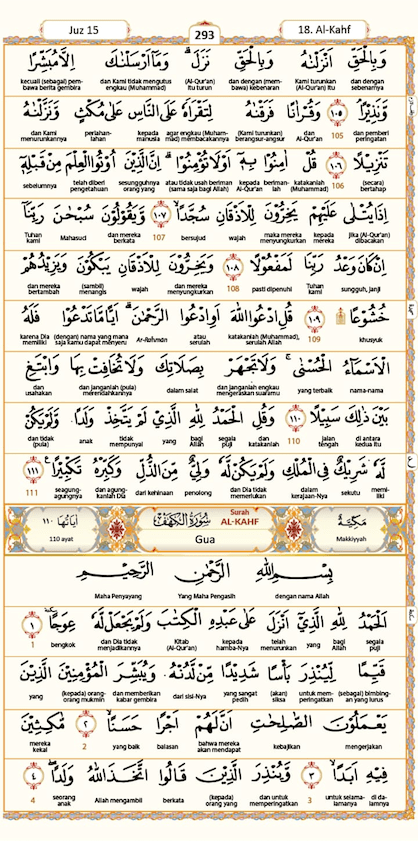 Juz 15
293
18. Al-Kahf
وَبِالْحَقِّ اَنْزَلْنٰهُ وَبِالْحَقِّ نَزَلَۗ وَمَآ اَرْسَلْنٰكَ اِلَّا مُبَشِّرًا
dan dengan sebenarnya Kami turunkan (Al-Qur'an) itu dan dengan (membawa) kebenaran (Al-Qur'an) itu turun dan Kami tidak mengutus engkau (Muhammad) kecuali (sebagai) pembawa berita gembira
وَّنَذِيْرًاۘ ١٠٥ وَقُرْاٰنًا فَرَقْنٰهُ لِتَقْرَاَهٗ عَلَى النَّاسِ عَلٰى مُكْثٍ وَّنَزَّلْنٰهُ
dan pemberi peringatan 105 dan Al-Qur'an (Kami turunkan) berangsur-angsur agar engkau (Muhammad) membacakannya kepada manusia perlahan-lahan dan Kami menurunkannya
تَنْزِيْلًا ١٠٦ قُلْ اٰمِنُوْا بِهٖٓ اَوْ لَا تُؤْمِنُوْاۗ اِنَّ الَّذِيْنَ اُوْتُوا الْعِلْمَ مِنْ قَبْلِهٖٓ
(secara) bertahap 106 katakanlah (Muhammad) berimanlah kepada Al-Qur'an atau tidak usah beriman (sama saja bagi Allah) sesungguhnya orang yang telah diberi pengetahuan sebelumnya
اِذَا يُتْلٰى عَلَيْهِمْ يَخِرُّوْنَ لِلْاَذْقَانِ سُجَّدًاۙ ١٠٧ وَّيَقُوْلُوْنَ سُبْحٰنَ رَبِّنَآ
jika (Al-Qur'an) dibacakan kepada mereka maka mereka menyungkurkan wajah bersujud 107 dan mereka berkata Mahasuci Tuhan kami
اِنْ كَانَ وَعْدُ رَبِّنَا لَمَفْعُوْلًا ١٠٨ وَيَخِرُّوْنَ لِلْاَذْقَانِ يَبْكُوْنَ وَيَزِيْدُهُمْ
sungguh, janji Tuhan kami pasti dipenuhi 108 dan mereka menyungkurkan wajah (sambil) menangis dan mereka bertambah
خُشُوْعًا ۩ ١٠٩ قُلِ ادْعُوا اللّٰهَ اَوِ ادْعُوا الرَّحْمٰنَۗ اَيًّا مَّا تَدْعُوْا فَلَهُ
khusyuk 109 katakanlah (Muhammad), serulah Allah atau serulah Ar-Rahmān (dengan) nama yang mana saja kamu dapat menyeru karena Dia memiliki
الْاَسْمَاۤءُ الْحُسْنٰىۚ وَلَا تَجْهَرْ بِصَلَاتِكَ وَلَا تُخَافِتْ بِهَا وَابْتَغِ
nama-nama yang terbaik dan janganlah engkau mengeraskan suaramu dalam salat dan janganlah (pula) merendahkannya dan usahakan
بَيْنَ ذٰلِكَ سَبِيْلًا ١١٠ وَقُلِ الْحَمْدُ لِلّٰهِ الَّذِيْ لَمْ يَتَّخِذْ وَلَدًا وَّلَمْ يَكُنْ
di antara kedua itu jalan tengah 110 dan katakanlah segala puji bagi Allah yang tidak mempunyai anak dan tidak (pula)
لَّهٗ شَرِيْكٌ فِى الْمُلْكِ وَلَمْ يَكُنْ لَّهٗ وَلِيٌّ مِّنَ الذُّلِّ وَكَبِّرْهُ تَكْبِيْرًا ١١١
memiliki sekutu dalam kerajaan-Nya dan Dia tidak memerlukan penolong dari kehinaan dan agungkanlah Dia seagung-agungnya 111
مَكِّيَّةٌ سُوْرَةُ الْكَهْفِ Surah AL-KAHF اٰيَاتُهَا ١١٠
Makkiyyah Gua 110 ayat
بِسْمِ اللّٰهِ الرَّحْمٰنِ الرَّحِيْمِ
dengan nama Allah Yang Maha Pengasih Maha Penyayang
اَلْحَمْدُ لِلّٰهِ الَّذِيْٓ اَنْزَلَ عَلٰى عَبْدِهِ الْكِتٰبَ وَلَمْ يَجْعَلْ لَّهٗ عِوَجًاۜ ١
segala puji bagi Allah yang telah menurunkan kepada hamba-Nya Kitab (Al-Qur'an) dan Dia tidak menjadikannya bengkok 1
قَيِّمًا لِّيُنْذِرَ بَأْسًا شَدِيْدًا مِّنْ لَّدُنْهُ وَيُبَشِّرَ الْمُؤْمِنِيْنَ الَّذِيْنَ
(sebagai) bimbingan yang lurus untuk memperingatkan (akan) siksa yang sangat pedih dari sisi-Nya dan memberikan kabar gembira (kepada) orang-orang mukmin yang
يَعْمَلُوْنَ الصّٰلِحٰتِ اَنَّ لَهُمْ اَجْرًا حَسَنًاۙ ٢ مَّاكِثِيْنَ
mengerjakan kebajikan bahwa mereka akan mendapat balasan yang baik 2 mereka kekal
فِيْهِ اَبَدًاۙ ٣ وَّيُنْذِرَ الَّذِيْنَ قَالُوا اتَّخَذَ اللّٰهُ وَلَدًاۖ ٤
di dalamnya untuk selama-lamanya 3 dan untuk memperingatkan (kepada) orang yang berkata Allah mengambil seorang anak 4